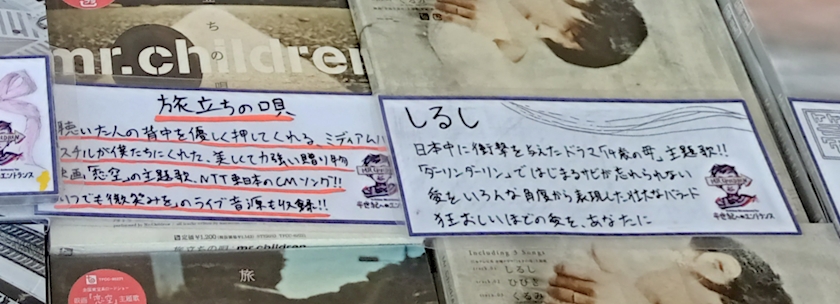 ちの唄
mr.children
旅立ちの唄
聴いた人の背中を優しく押してくれる、ミディアムバ
スチルが僕たちにくれた、美しくて力強い贈り物
映画「恋空」の主題歌、NTT東日本のCMソング!!
いつでも微笑みを」のライブ音源も収録!!
しるし
日本中に衝撃を与えたドラマ「14才の母」主題歌!!
「ダーリンダーリン」ではじまるサビが忘れられない
愛をいろんな角度から表現した壮大なバラード
狂おしいほどの愛を、あなたに
エントランス
エントランス
旅立ちの唄 mr.children
旅
Including 3 Songs
しるし
ひびき
くるみ